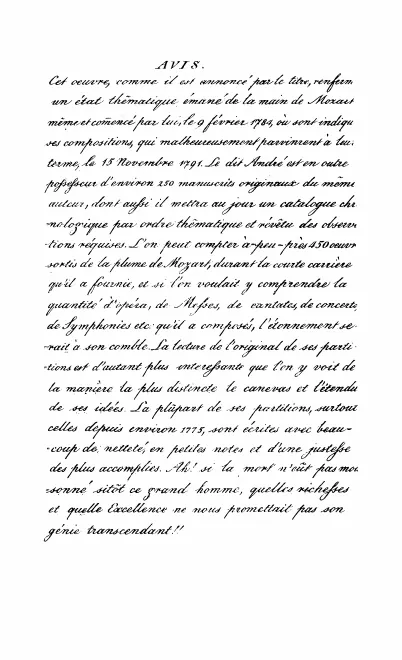 AVIS.
Cet oeuvre, comme il est annoncé par le titre, renferm
un état thématique émané de la main de Mozart
même et comencé par lui, le 9 février 1784, où sont indiqu
ses compositions, qui malheureusement parvinrent à leur
terme, le 15 Novembre 1791. Le dit André est en outre
possesseur d'environ 250 manuscrits originaux du même
auteur, dont aussi il mettra au jour un catalogue chr
nologique par ordre thématique et révêtu des observ
tions réquises. L'on peut compter à-peu-près 450 oeuvr
sortis de la plume de Mozart, durant la courte carrière
qu'il a fournie, et si l'on voulait y comprendre la
quantité d'opéra, de Messes, de cantates, de concerts,
de Symphonies etc. qu'il a composés, l'étonnement se-
rait à son comble. La lecture de l'original de ses parti-
-tions est d'autant plus interessante que l'on y voit de
la manière la plus distincte le canevas et l'étendu
de ses idées. La plûpart de ses partitions, surtout
celles depuis environ 1775, sont écrites avec beau-
-coup de netteté, en petites notes et d'une justesse
des plus accomplies. Ah! si la mort n'eût pas moi
-sonné sitôt ce grand homme, quelles richesses
et quelle Excellence ne nous promettait pas son
génie transcendant!!